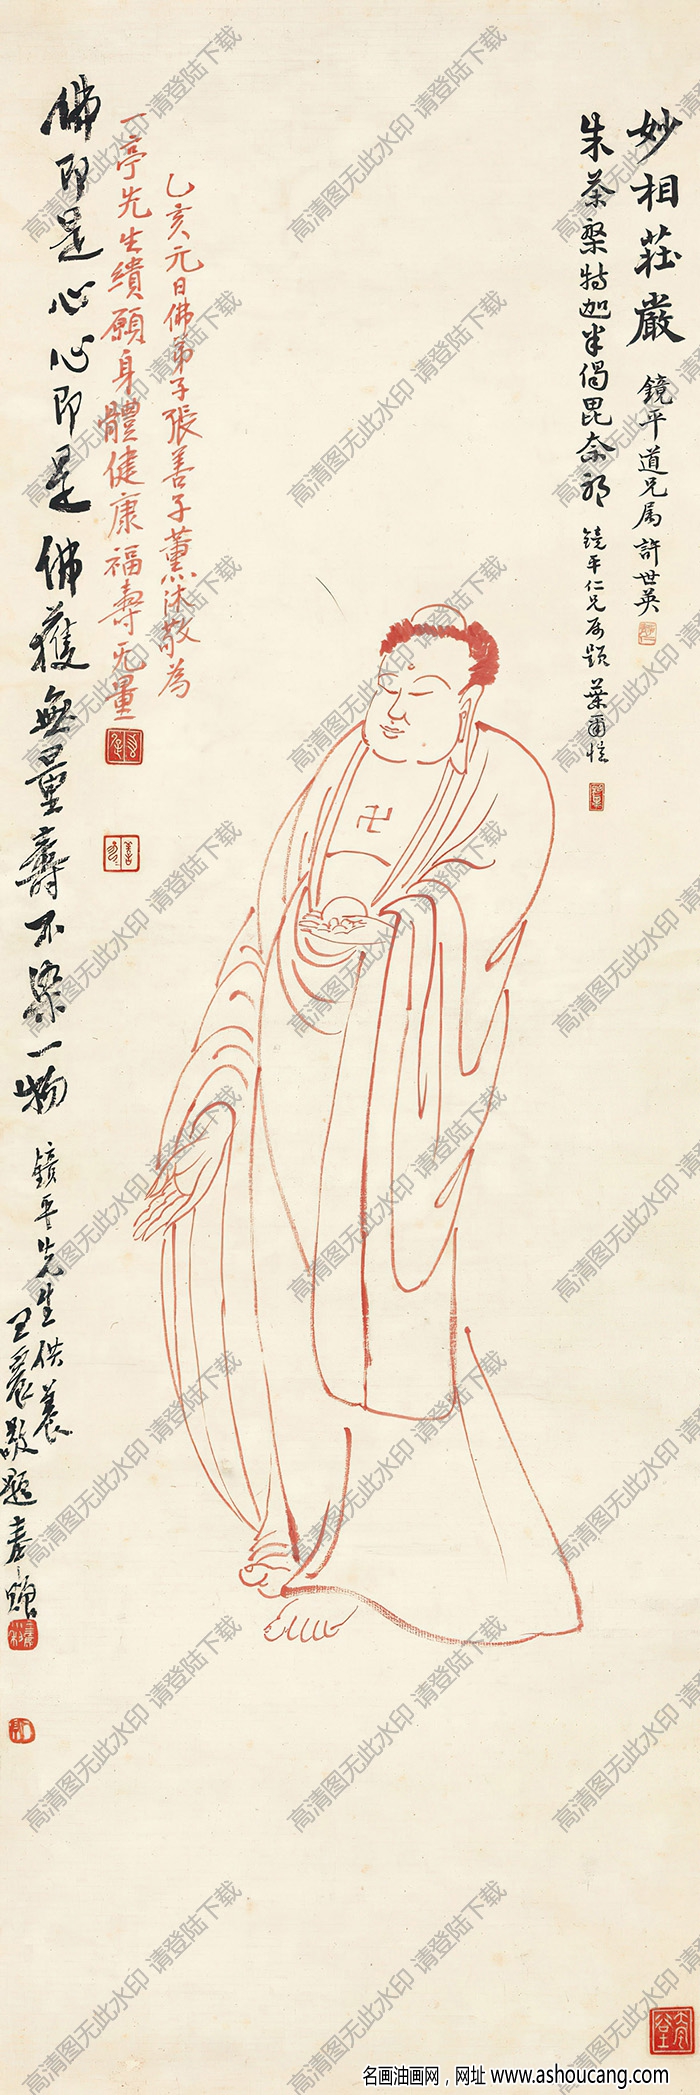 妙相莊嚴
鏡平道兄属 許世英
朱荼槃特迦半偈毘奈邪
鏡平仁兄属題 葉爾愷
乙亥元日佛弟子張善子薰沐敬為
一亭先生繢願身體健康福壽无量
佛即是心心即是佛獲無量壽不染一物
鏡平先生供養
王震敬題
高清图无此水印 请登陆下载
名画油画网，网址 www.ashoucang.com